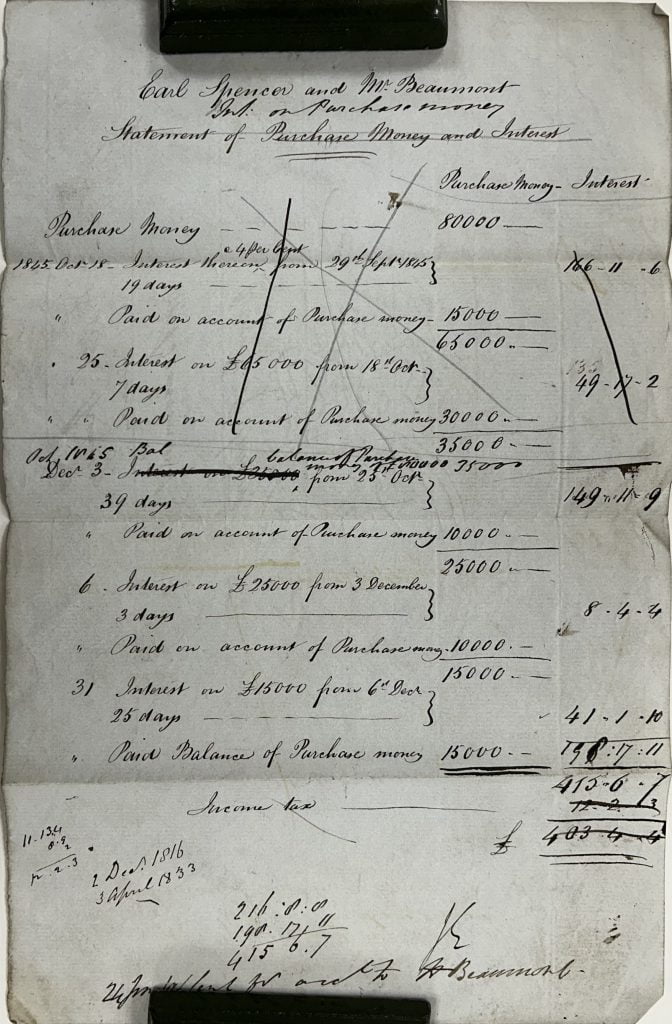 Earl Spencer and Mr. Beaumont
Int: on Purchase money
Statement of Purchase Money and Interest
Purchase Money - Interest
Purchase Money - - - - - - 80000 -
1845 Oct 18 - Interest thereon @ 4 per Cent from 29th Sept 1845 } 166 - 11 - 6
19 days
" Paid on account of Purchase money - 15000 -
65000 " -
" 25 - Interest on £65000 from 18th Oct } 135
7 days 49 - 17 - 2
" " Paid on account of Purchase money 30000 -
35000 -
Oct 1845 Bal balance of Purchase
Decr 3 - Interest on £35000 money 35000
from 25th Oct }
39 days 149 " 11 - 9
" Paid on account of Purchase money 10000 -
25000 " -
6 - Interest on £25000 from 3 December }
3 days 8 - 4 - 4
" Paid on account of Purchase money - 10000 " -
15000 -
31 Interest on £15000 from 6th Decr }
25 days 41 - 1 - 10
" Paid Balance of Purchase money 15000 " - 198 : 17 : 11
415 - 6 - 7
Income tax 12 - 2 - 3
£ 403 - 4 - 4
11 . 13 . 4
12 . 2 . 3
2 Decr. 1816
3 April 1833
216 : 8 : 8
198 . 17 . 11
415 6 . 7
Beaumont